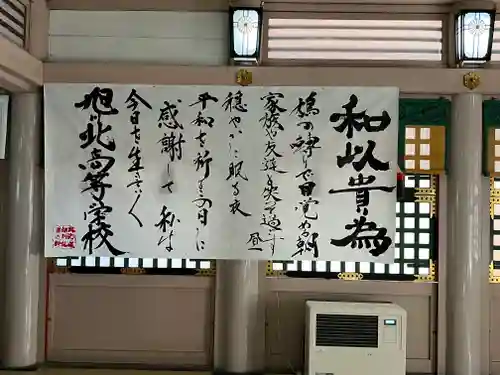 和以貴為
鳩の声で目覚める朝
家族や友達と過ごす昼
穏やかに眠る夜
平和を祈る毎日に
感謝して私は
今日を生きていく
旭北高等学校